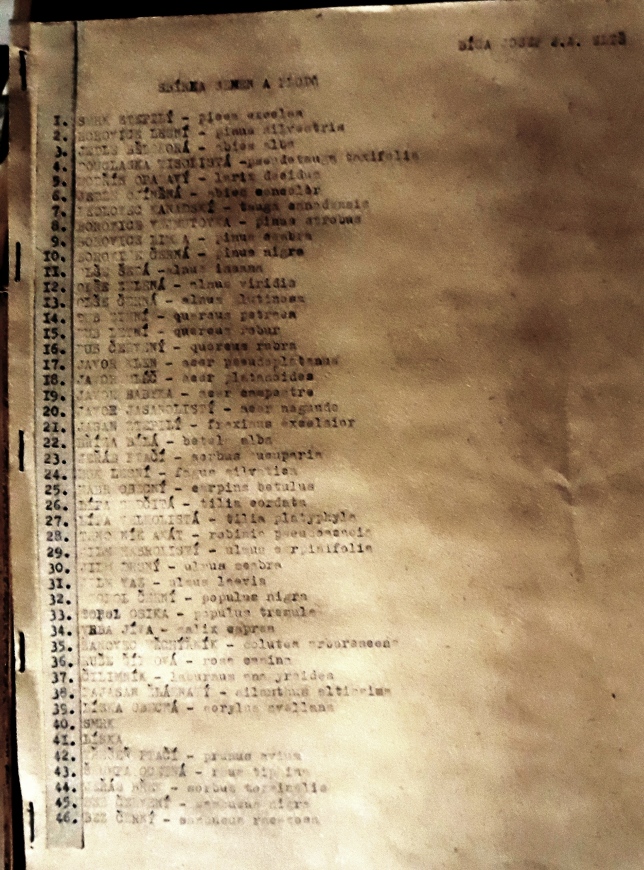 BÍNA JOSEF
SBÍRKA SEMEN A PLODŮ
1. SMRK ZTEPILÝ - picea excelsa
2. BOROVICE LESNÍ - pinus silvestris
3. JEDLE BĚLOKORÁ - abies alba
4. DOUGLASKA TISOLISTÁ - pseudotsuga taxifolia
5. MODŘÍN OPADAVÝ - larix decidua
6. JEDLE OJÍNĚNÁ - abies concolor
7. JEDLOVEC KANADSKÝ - tsuga canadensis
8. BOROVICE VEJMUTOVKA - pinus strobus
9. BOROVICE LIMBA - pinus cembra
10. BOROVICE ČERNÁ - pinus nigra
11. OLŠE ŠEDÁ - alnus incana
12. OLŠE ZELENÁ - alnus viridis
13. OLŠE ČERNÁ - alnus glutinosa
14. DUB ZIMNÍ - quercus petraea
15. DUB LETNÍ - quercus robur
16. DUB ČERVENÝ - quercus rubra
17. JAVOR KLEN - acer pseudoplatanus
18. JAVOR MLÉČ - acer platanoides
19. JAVOR BABYKA - acer campestre
20. JAVOR JASANOLISTÝ - acer negundo
21. JASAN ZTEPILÝ - fraxinus excelsior
22. BŘÍZA BÍLÁ - betul alba
23. JEŘÁB PTAČÍ - sorbus aucuparia
24. BUK LESNÍ - fagus silvatica
25. HABR OBECNÝ - carpins betulus
26. LÍPA SRDČITÁ - tilia cordata
27. LÍPA VELKOLISTÁ - tilia platyphyla
28. TRNOVNÍK AKÁT - robinia pseudoacacia
29. JILM HABROLISTÝ - ulmus carpinifolia
30. JILM DRSNÝ - ulmus scabra
31. JILM VAZ - ulmus laevis
32. TOPOL ČERNÝ - populus nigra
33. TOPOL OSIKA - populus tremula
34. VRBA JÍVA - salix caprea
35. ŽANOVEC MĚCHÝŘNÍK - colutea arborescens
36. RŮŽE ŠÍPKOVÁ - rosa canina
37. ČILIMNÍK - laburnum
38. PAJASAN ŽLÁZNATÝ - ailanthus altissima
39. LÍSKA OBECNÁ - corylus avellana
40. SMRK
41. LÍSKA
42. TŘEŠEŇ PTAČÍ - prunus avium
43.
44. JEŘÁB BŘEK - sorbus torminalis
45. BEZ ČERVENÝ - sambucus nigra
46. BEZ ČERNÝ - sambucus racemosa